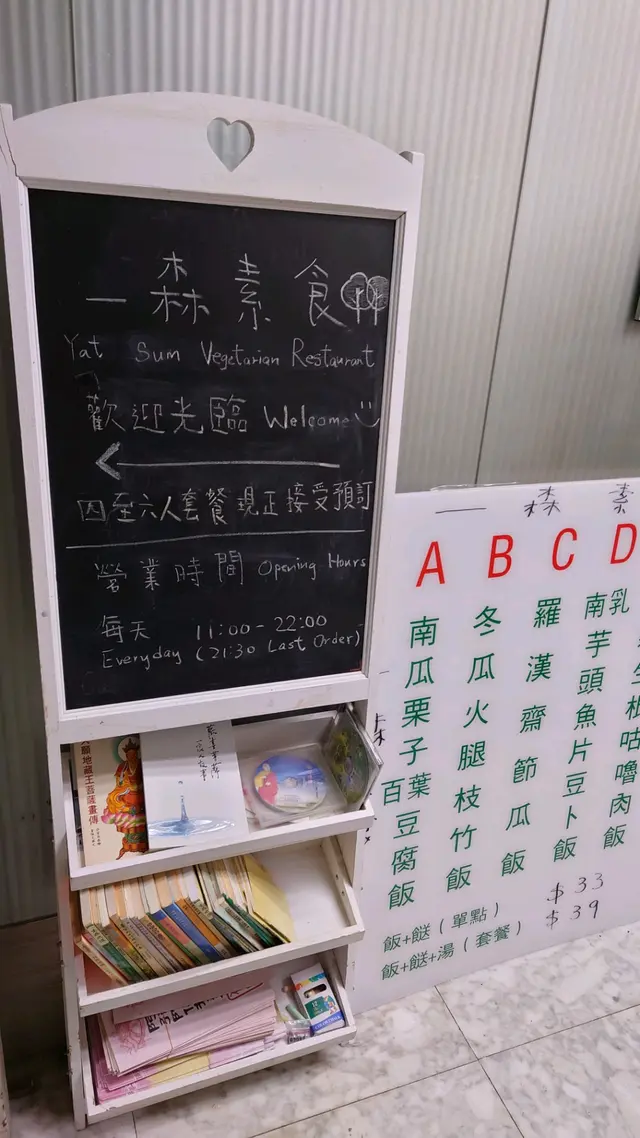 一森素食
Yat Sum Vegetarian Restaurant
歡迎光臨 Welcome
四至六人套餐現正接受預訂
營業時間 Opening Hours
每天 11:00-22:00
Everyday (21:30 Last Order)
願地藏王菩薩畫傳
一 森 素
A B C D
南瓜栗子百葉豆腐飯
冬瓜火腿枝竹飯
羅漢齋節瓜飯
南乳芋頭魚片豆卜飯
咕嚕肉飯
飯+餸(單點) $33
飯+餸+湯(套餐) $39